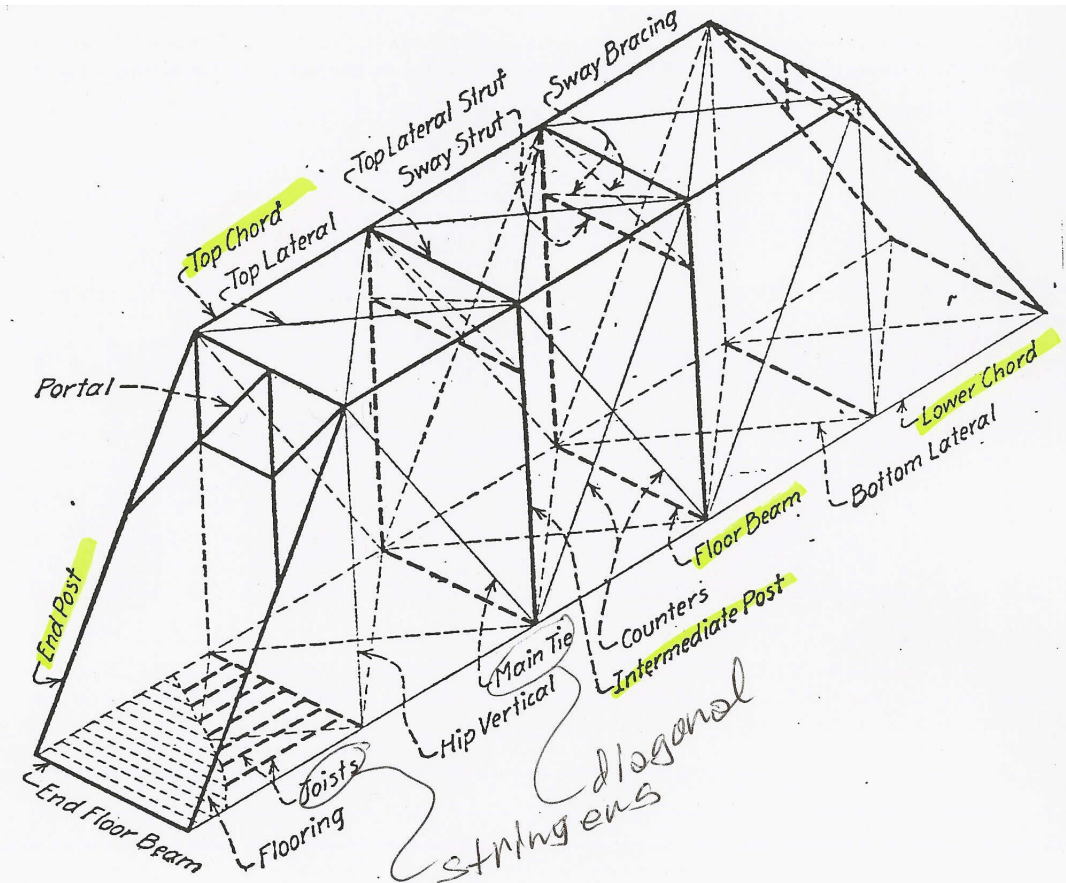 Sway Bracing
Top Lateral Strut
Sway Strut
Top Chord
Top Lateral
Portal
Lower Chord
Bottom Lateral
Floor Beam
End Post
Counters
Intermediate Post
Main Tie
Hip Vertical
diagonal
Joists
stringers
Flooring
End Floor Beam
r